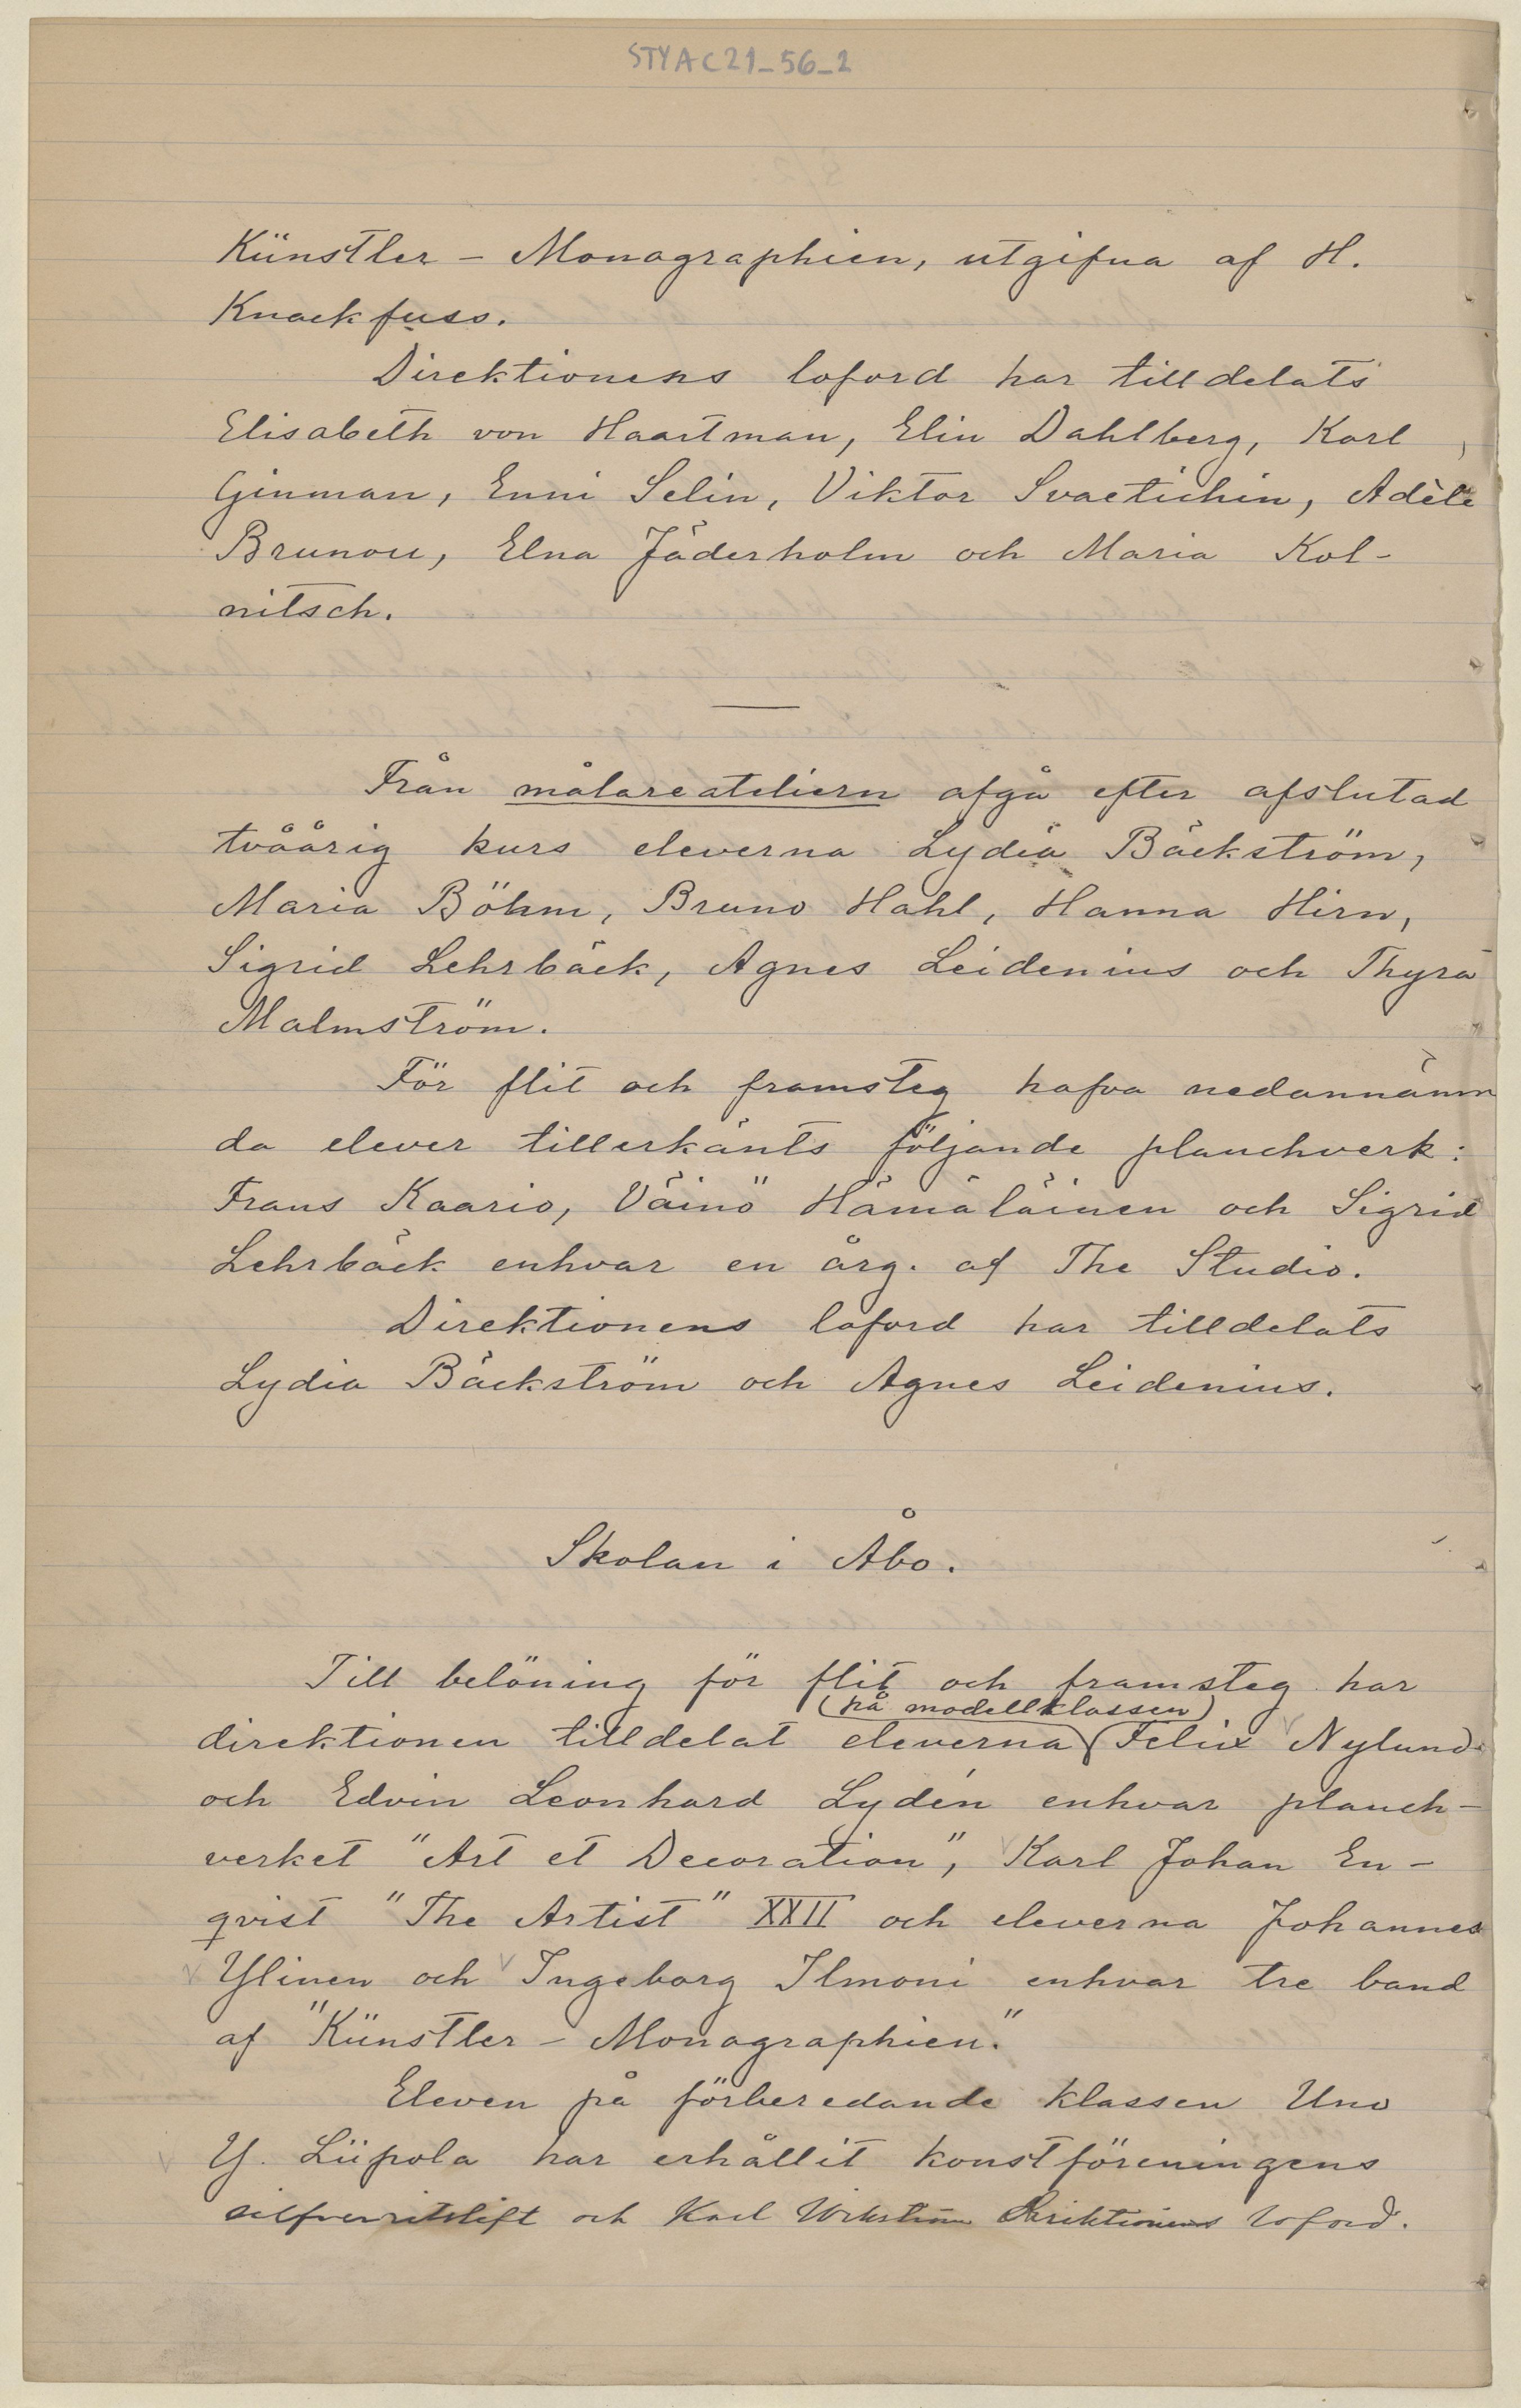 STYAC21_56_2
Künstler - Monographien, utgifna af H.
Knackfuss.
Direktionens loford har tilldelats
Elisabeth von Haartman, Elin Dahlberg, Karl
Ginman, Enni Selin, Viktor Svaetichin, Adèle
Brunou, Elna Jäderholm och Maria Kol-
nitsch.
Från målareateliern afgå efter afslutad
tvåårig kurs eleverna Lydia Bäckström,
Maria Böhm, Bruno Hahl, Hanna Hirn,
Sigrid Lehrbäck, Agnes Leidenius och Thyra
Malmström.
För flit och framsteg hafva nedannämn
da elever tillerkänts följande planchverk:
Frans Kaario, Väinö Hämäläinen och Sigrid
Lehrbäck enhvar en årg. af The Studio.
Direktionens loford har tilldelats
Lydia Bäckström och Agnes Leidenius.
Skolan i Åbo.
Till belöning för flit och framsteg har
(på modellklassen)
direktionen tilldelat eleverna Felix Nylund
och Edvin Leonhard Lydén enhvar planch-
verket "Art et Decoration", Karl Johan En-
qvist "The Artist" XXII och eleverna Johannes
Ylinen och Ingeborg Ilmoni enhvar tre band
af "Künstler - Monographien."
Eleven på förberedande klassen Uno
Y. Liipola har erhållit konstföreningens
silfverritstift och Karl Wikström Direktionens loford.